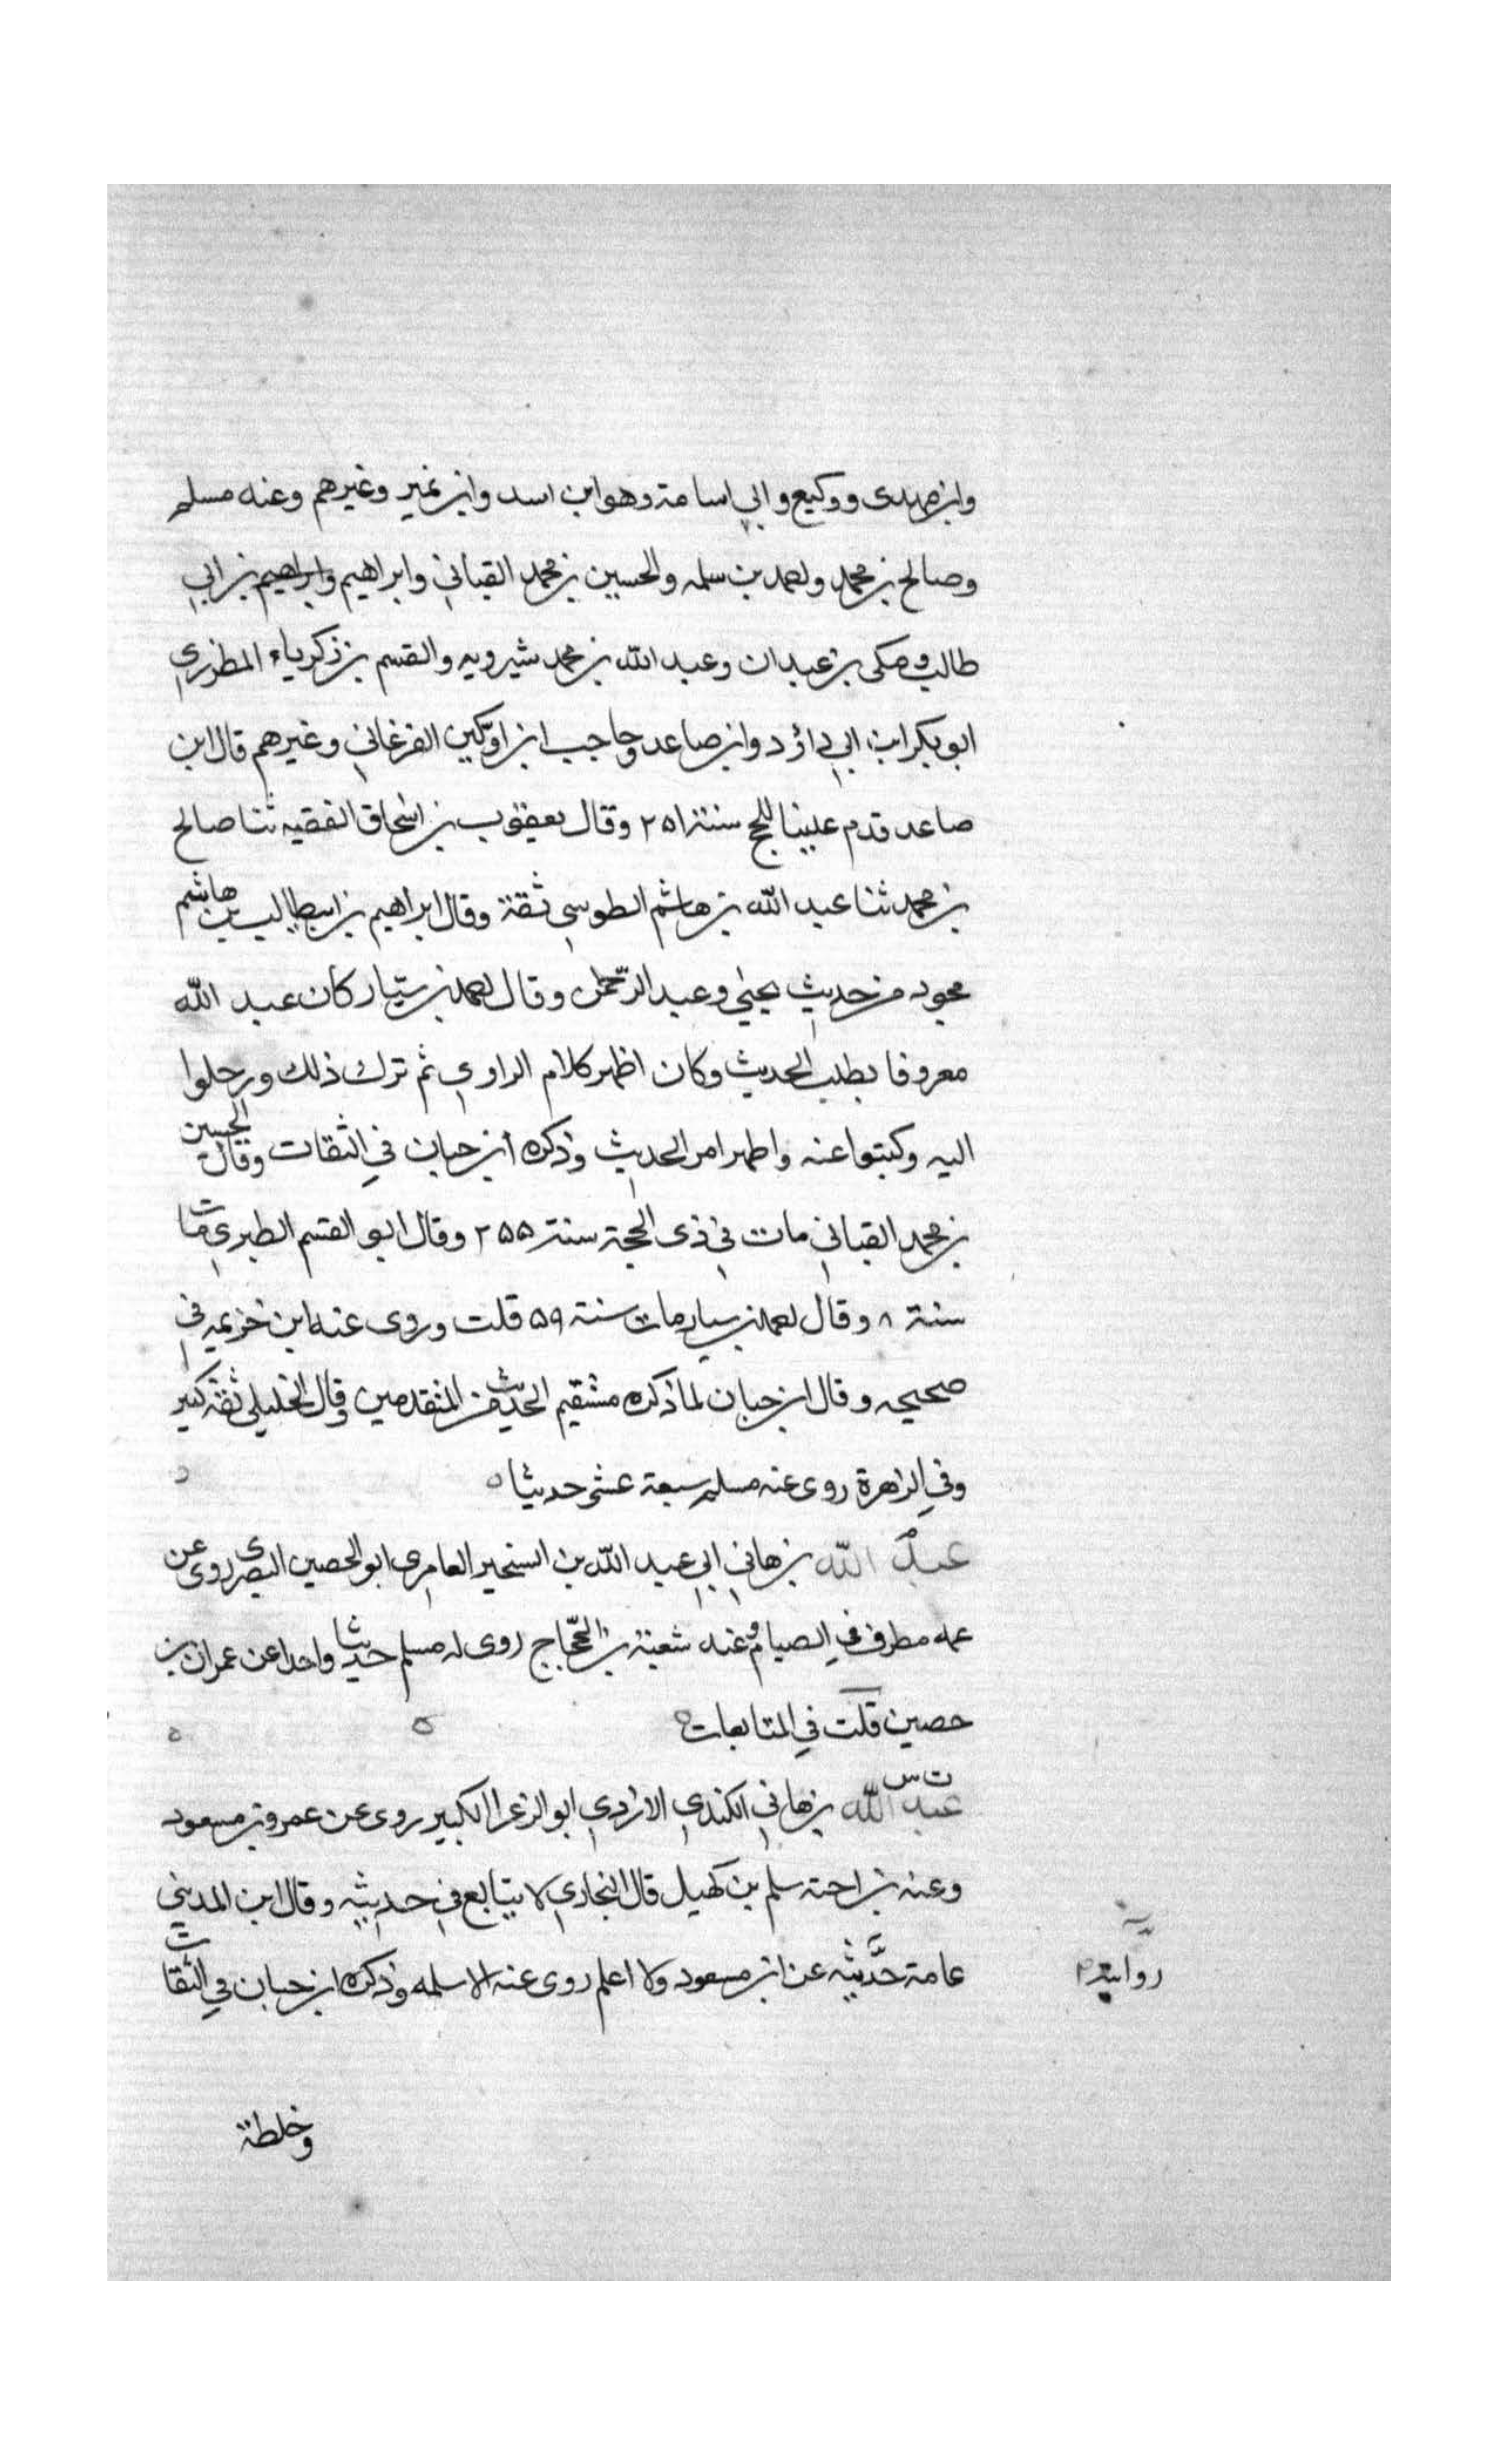 وابن مهدى ووكيع وابي اسامة وهو ابن اسد وابن نمير وغيرهم وعنه مسلم
وصالح بن محمد واحمد بن سلمه والحسين بن محمد القباني وابراهيم وابراهيم بن ابي
طالب ومكى بن عبدان وعبد الله بن محمد شيرويه والقسم بن زكرياء المطرزى
ابو بكر ابن ابي داؤد وابن صاعد وحاجب ابن اوكين الفرغاني وغيرهم قال ابن
صاعد قدم علينا للحج سنة ٢٥١ وقال يعقوب بن اسحاق الفقيه ثنا صالح
بن محمد ثنا عبد الله بن هاشم الطوسي ثقة وقال ابراهيم بن ابيطالب بن هاشم
مجود من حديث يحيٰي وعبد الرّحمٰن وقال احمد بن سيّار كان عبد الله
معروفا بطلب الحديث وكان اظهر كلام الراوي ثم ترك ذلك ورحلوا
اليه وكبتوا عنه واظهر امر الحديث وذكره ابن حبان في الثقات وقال الحسين
بن محمد القباني مات في ذى الحجة سنة ٢٥٥ وقال ابو القسم الطبري مات
سنة ٨ وقال احمد بن سيار مات سنة ٥٩ قلت وروى عنه ابن خزيمه في
صحيحه وقال ابن حبان لما ذكره مستقيم الحديث من المتقدمين وقال الخليلي ثقة كبير
وفي الزهرة روى عنه مسلم سبعة عشر حديثا ه
عبد الله بن هاني ابي عبد الله بن السخير العامري ابو الحصين البصرى روى عن
عمه مطرف في الصيام وعنه شعبة بن الحجّاج روى له مسلم حديثا واحدا عن عمران بن
حصين قلت في المتابعات ه
ت س
عبد الله بن هاني الكندي الازدي ابو الزعرا الكبير روى عن عمر وبن مسعود
وعنه بن اخته سلم بن كهيل قال البخاري لا يتابع في حديثه وقال ابن المديني
عامة حدّيثه عن ابن مسعود ولا اعلم روى عنه الا سلمه وذكره ابن حبان في الثقات
وخلطة